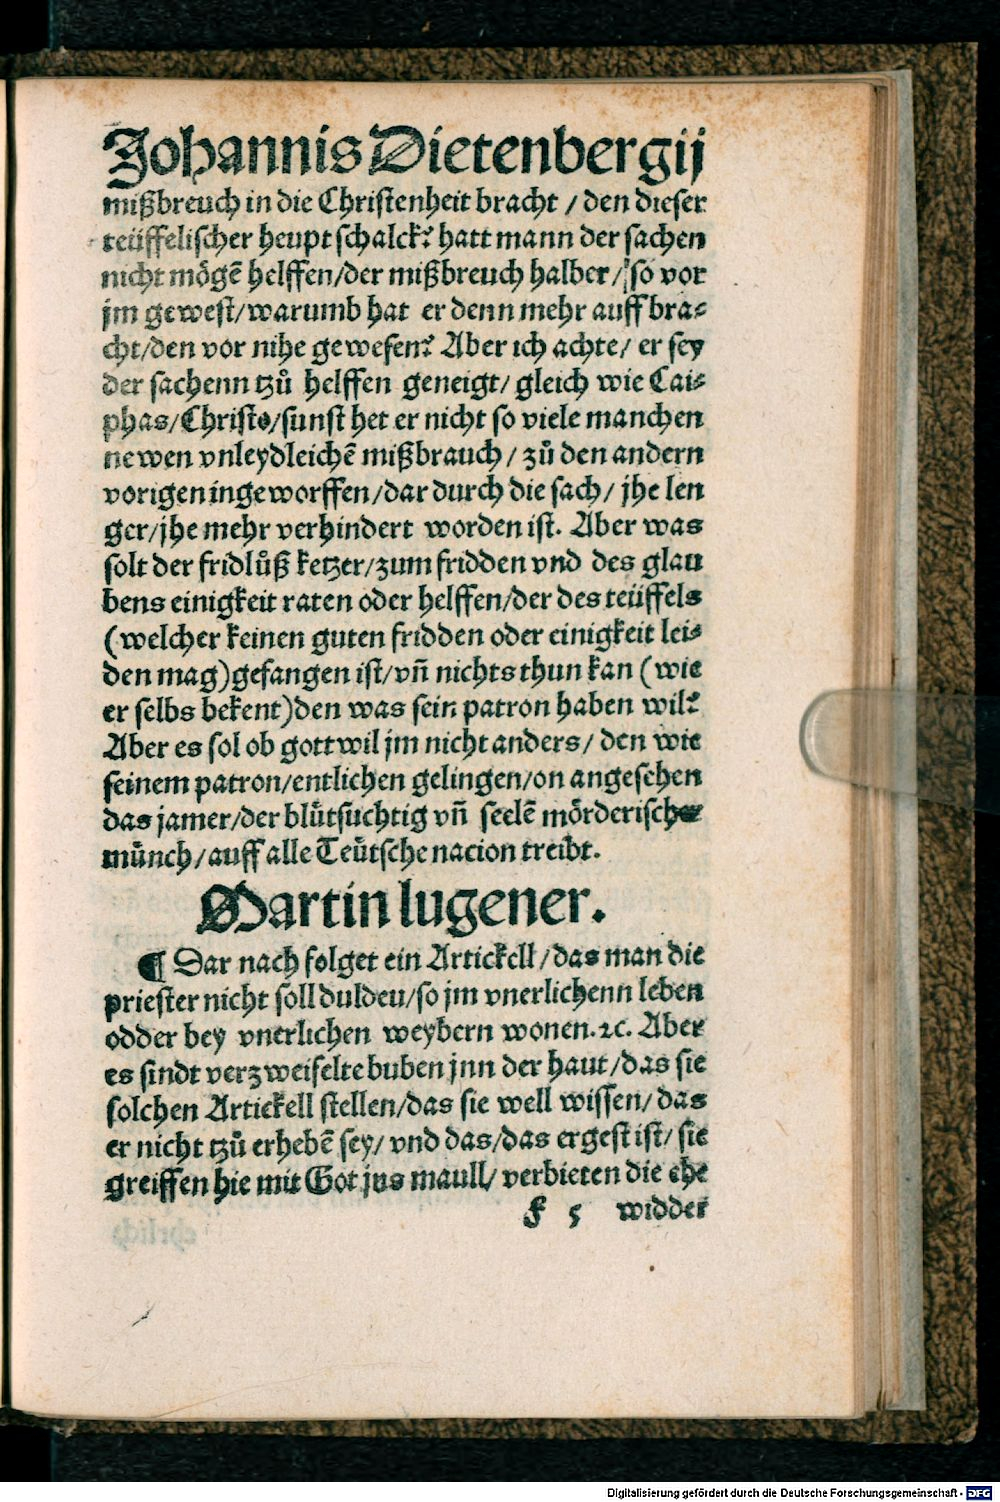 Johannis Dietenbergij
mißbreuch in die Christenheit bracht / den dieser
teüffelischer heupt schalck? hatt mann der sachen
nicht mögē helffen/der mißbreuch halber/ so vor
jm gewest/warumb hat er denn mehr auff bra⸗
cht/den vor nihe gewesen? Aber ich achte/ er sey
der sachenn tzů helffen geneigt/ gleich wie Cai⸗
phas/Christo/sunst het er nicht so viele manchen
newen vnleydleichē mißbrauch/ zů den andern
vorigen ingeworffen/dar durch die sach/ jhe len
ger/jhe mehr verhindert worden ist. Aber was
solt der fridlůß ketzer/zum fridden vnd des glau
bens einigkeit raten oder helffen/der des teüffels
(welcher keinen guten fridden oder einigkeit lei⸗
den mag)gefangen ist/vñ nichts thun kan (wie
er selbs bekent)den was sein patron haben wil?
Aber es sol ob gott wil jm nicht anders/ den wie
seinem patron/entlichen gelingen/on angesehen
das jamer/der blůtsuchtig vñ seelē mörderischer
münch/auff alle Teütsche nacion treibt.
Martin lugener.
¶ Dar nach folget ein Artickell/das man die
priester nicht soll dulden/so jm vnerlichenn leben
odder bey vnerlichen weybern wonen. ꝛc. Aber
es sindt verzweifelte buben jnn der haut/das sie
solchen Artickell stellen/das sie well wissen/ das
er nicht tzů erhebē sey/ vnd das/das ergest ist/ sie
greiffen hie mit Got jns maull/ verbieten die ehe
F 5 widder
Digitalisierung gefördert durch die Deutsche Forschungsgemeinschaft - DFG